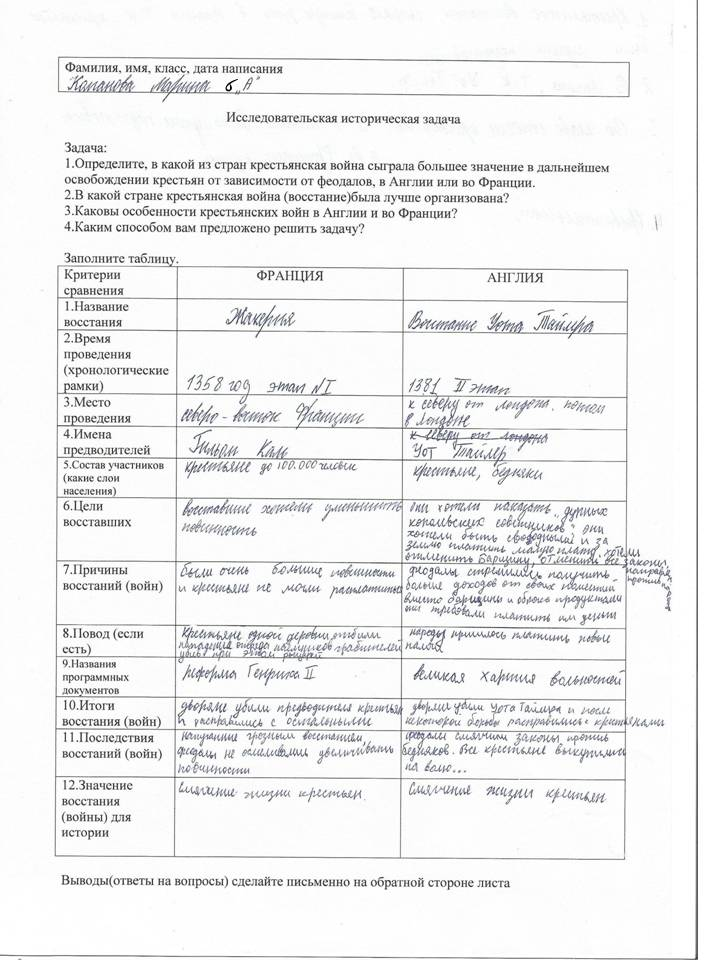 Фамилия, имя, класс, дата написания
Марина 6 „А"
Исследовательская историческая задача
Задача:
1.Определите, в какой из стран крестьянская война сыграла большее значение в дальнейшем
освобождении крестьян от зависимости от феодалов, в Англии или во Франции.
2.В какой стране крестьянская война (восстание)была лучше организована?
3.Каковы особенности крестьянских войн в Англии и во Франции?
4.Каким способом вам предложено решить задачу?
Заполните таблицу.
Критерии
сравнения
ФРАНЦИЯ
АНГЛИЯ
1.Название
восстания
Жакерия
Восстание Уота Тайлера
2.Время
проведения
(хронологические
рамки)
1358 год этап №I
1381 II этап
3.Место
проведения
северо-восток Франции
к северу от Лондона. потом
в Лондон
4.Имена
предводителей
Гильом Каль
к северу от Лондона
Уот Тайлер
5.Состав участников
(какие слои
населения)
крестьяне до 100.000 человек
крестьяне, бедняки
6.Цели
восставших
восставшие хотели уменьшить
повинность
они хотели наказать „дурных
королевских советников" они
хотели быть свободными и за
землю платить малую плату, хотели
отменить барщину, отменить все законы,
направл.
против
7.Причины
восстаний (войн)
были очень большие повинности
и крестьяне не могли расплатиться
феодалы стремились получить
больше доходов от своих поместий
вместо барщины и оброка продуктами
они требовали платить им деньги
8.Повод (если
есть)
Крестьяне одной деревни отбили
нападение отряда наёмников грабителей
убив при этом рыцарей
народу пришлось платить новые
налоги
9.Названия
программных
документов
реформа Генриха II
великая Хартия вольностей
10.Итоги
восстания (войн)
дворяне убили предводителя крестьян
и расправились с остальными
дворяне убили Уота Тайлера и после
некоторой борьбы расправились с крестьянами
11.Последствия
восстаний (войн)
напуганные грозным восстанием,
феодалы не осмеливались увеличивать
повинности
феодалы смягчили законы против
бедняков. Все крестьяне выкупились
на волю...
12.Значение
восстания
(войны) для
истории
смягчение жизни крестьян.
Смягчение жизни крестьян
Выводы(ответы на вопросы) сделайте письменно на обратной стороне листа